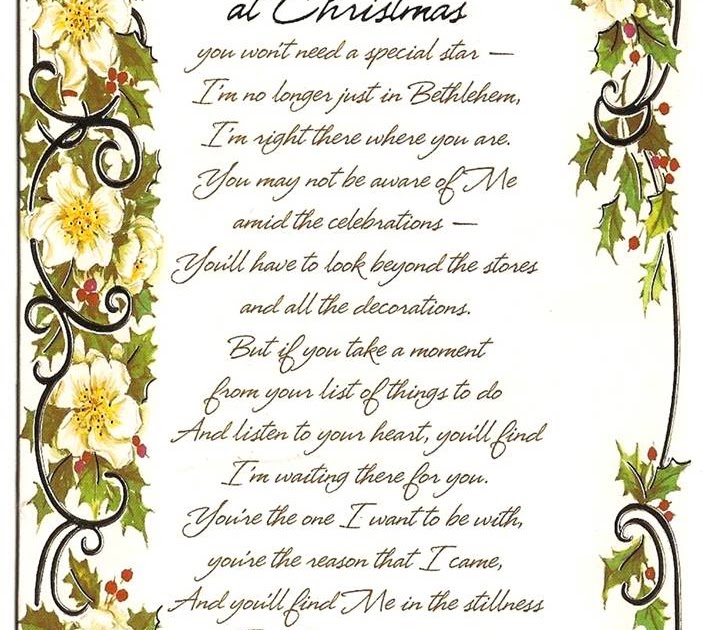 at Christmas
you won't need a special star —
I'm no longer just in Bethlehem,
I'm right there where you are.
You may not be aware of Me
amid the celebrations —
You'll have to look beyond the stores
and all the decorations.
But if you take a moment
from your list of things to do
And listen to your heart, you'll find
I'm waiting there for you.
You're the one I want to be with,
you're the reason that I came,
And you'll find Me in the stillness